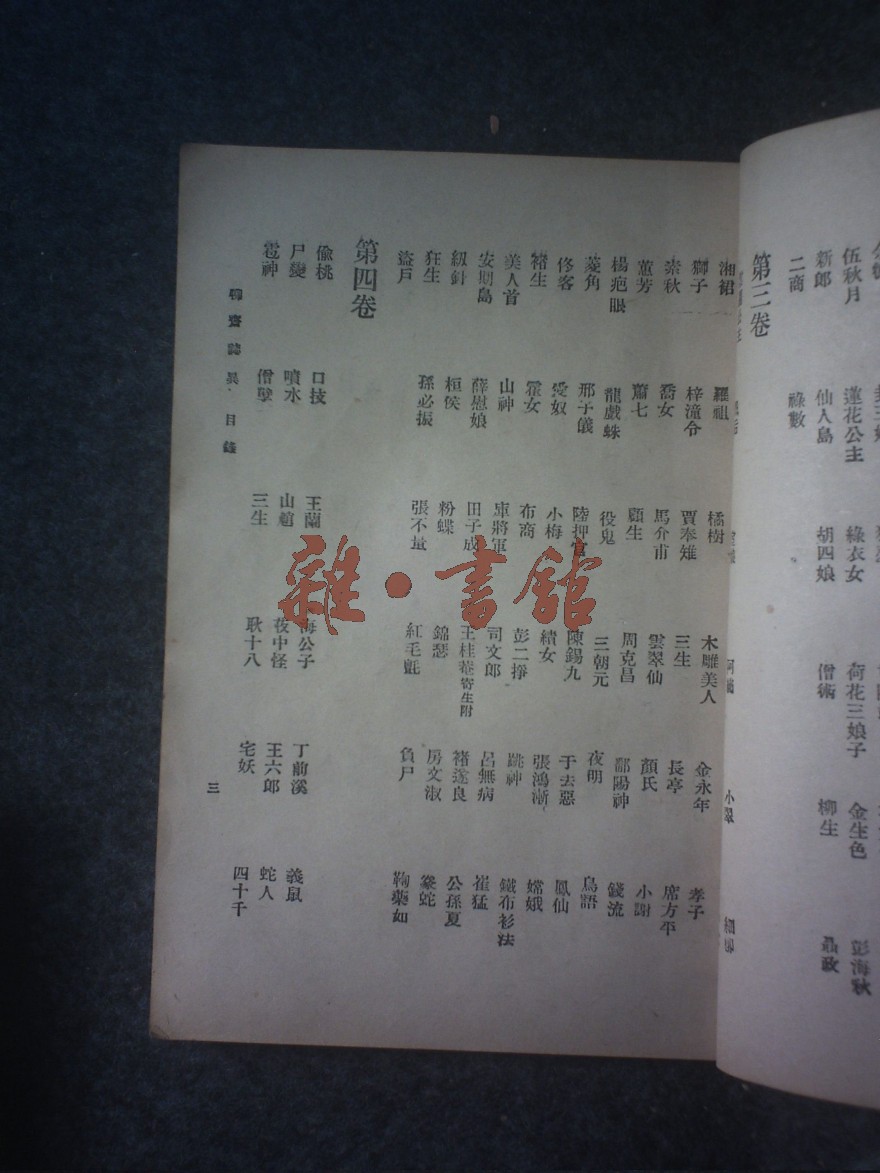 伍秋月 蓮花公主 綠衣女 荷花三娘子 金生色 彭海秋
新郎 仙人島 胡四娘 僧術 柳生 聶政
二商 祿數
第三卷
小翠 細柳
湘裙 羅祖 橘樹 木雕美人 金永年 孝子
獅子 梓潼令 賈奉雉 三生 長亭 席方平
素秋 喬女 馬介甫 雲翠仙 顏氏 小謝
蕙芳 蕭七 顧生 周克昌 鄱陽神 錢流
楊疤眼 龍戲蛛 役鬼 三朝元 夜明 鳥語
菱角 邢子儀 陸押官 陳錫九 于去惡 鳳仙
佟客 愛奴 小梅 績女 張鴻漸 嫦娥
褚生 霍女 布商 彭二掙 跳神 鐵布衫法
美人首 山神 庫將軍 司文郎 呂無病 崔猛
安期島 薛慰娘 田子成 王桂菴寄生附 褚遂良 公孫夏
紉針 桓侯 粉蝶 錦瑟 房文淑
狂生 孫必振 張不量 紅毛氈 負尸 鞠藥如
盜戶
第四卷
偷桃 口技 王蘭 海公子 丁前溪 義鼠
尸變 噴水 山魈 荍中怪 王六郎 蛇人
雹神 僧孽 三生 耿十八 宅妖 四十千
聊齋誌異 目錄 三
雜·書館